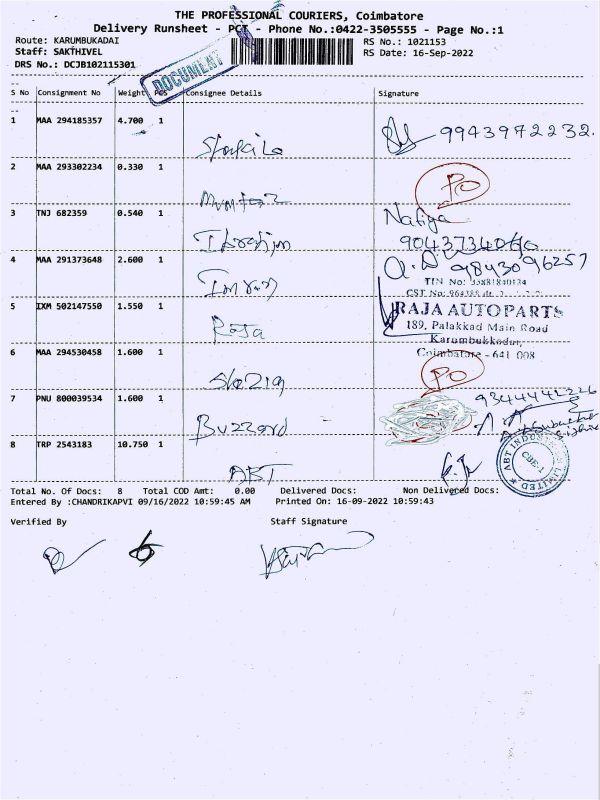 THE PROFESSIONAL COURIERS, Coimbatore
Delivery Runsheet - PCT - Phone No.:0422-3505555 - Page No.:1
Route: KARUMBUKADAI RS No.: 1021153
Staff: SAKTHIVEL RS Date: 16-Sep-2022
DRS No.: DCJB102115301
DOCUMENT
S No Consignment No Weight PCS Consignee Details Signature
1 MAA 294185357 4.700 1
9943972232.
Shakila
2 MAA 293302234 0.330 1
PO
Mumtaz
3 TNJ 682359 0.540 1
Nafiya
Ibrahim
4 MAA 291373648 2.600 1
9843096257
TIN No:
CST No:
Imran
5 IXM 502147550 1.550 1
RAJA AUTOPARTS
189, Palakkad Main Road
Raja
Karumbukkadai,
Coimbatore - 641 008
6 MAA 294530458 1.600 1
PO
Shazia
7 PNU 800039534 1.600 1
9344442226
Buzzard
8 TRP 2543183 10.750 1
ABT INDUSTRIES LIMITED
CBE-1
ABT
Total No. Of Docs: 8 Total COD Amt: 0.00 Delivered Docs: Non Delivered Docs:
Entered By :CHANDRIKAPVI 09/16/2022 10:59:45 AM Printed On: 16-09-2022 10:59:43
Verified By Staff Signature